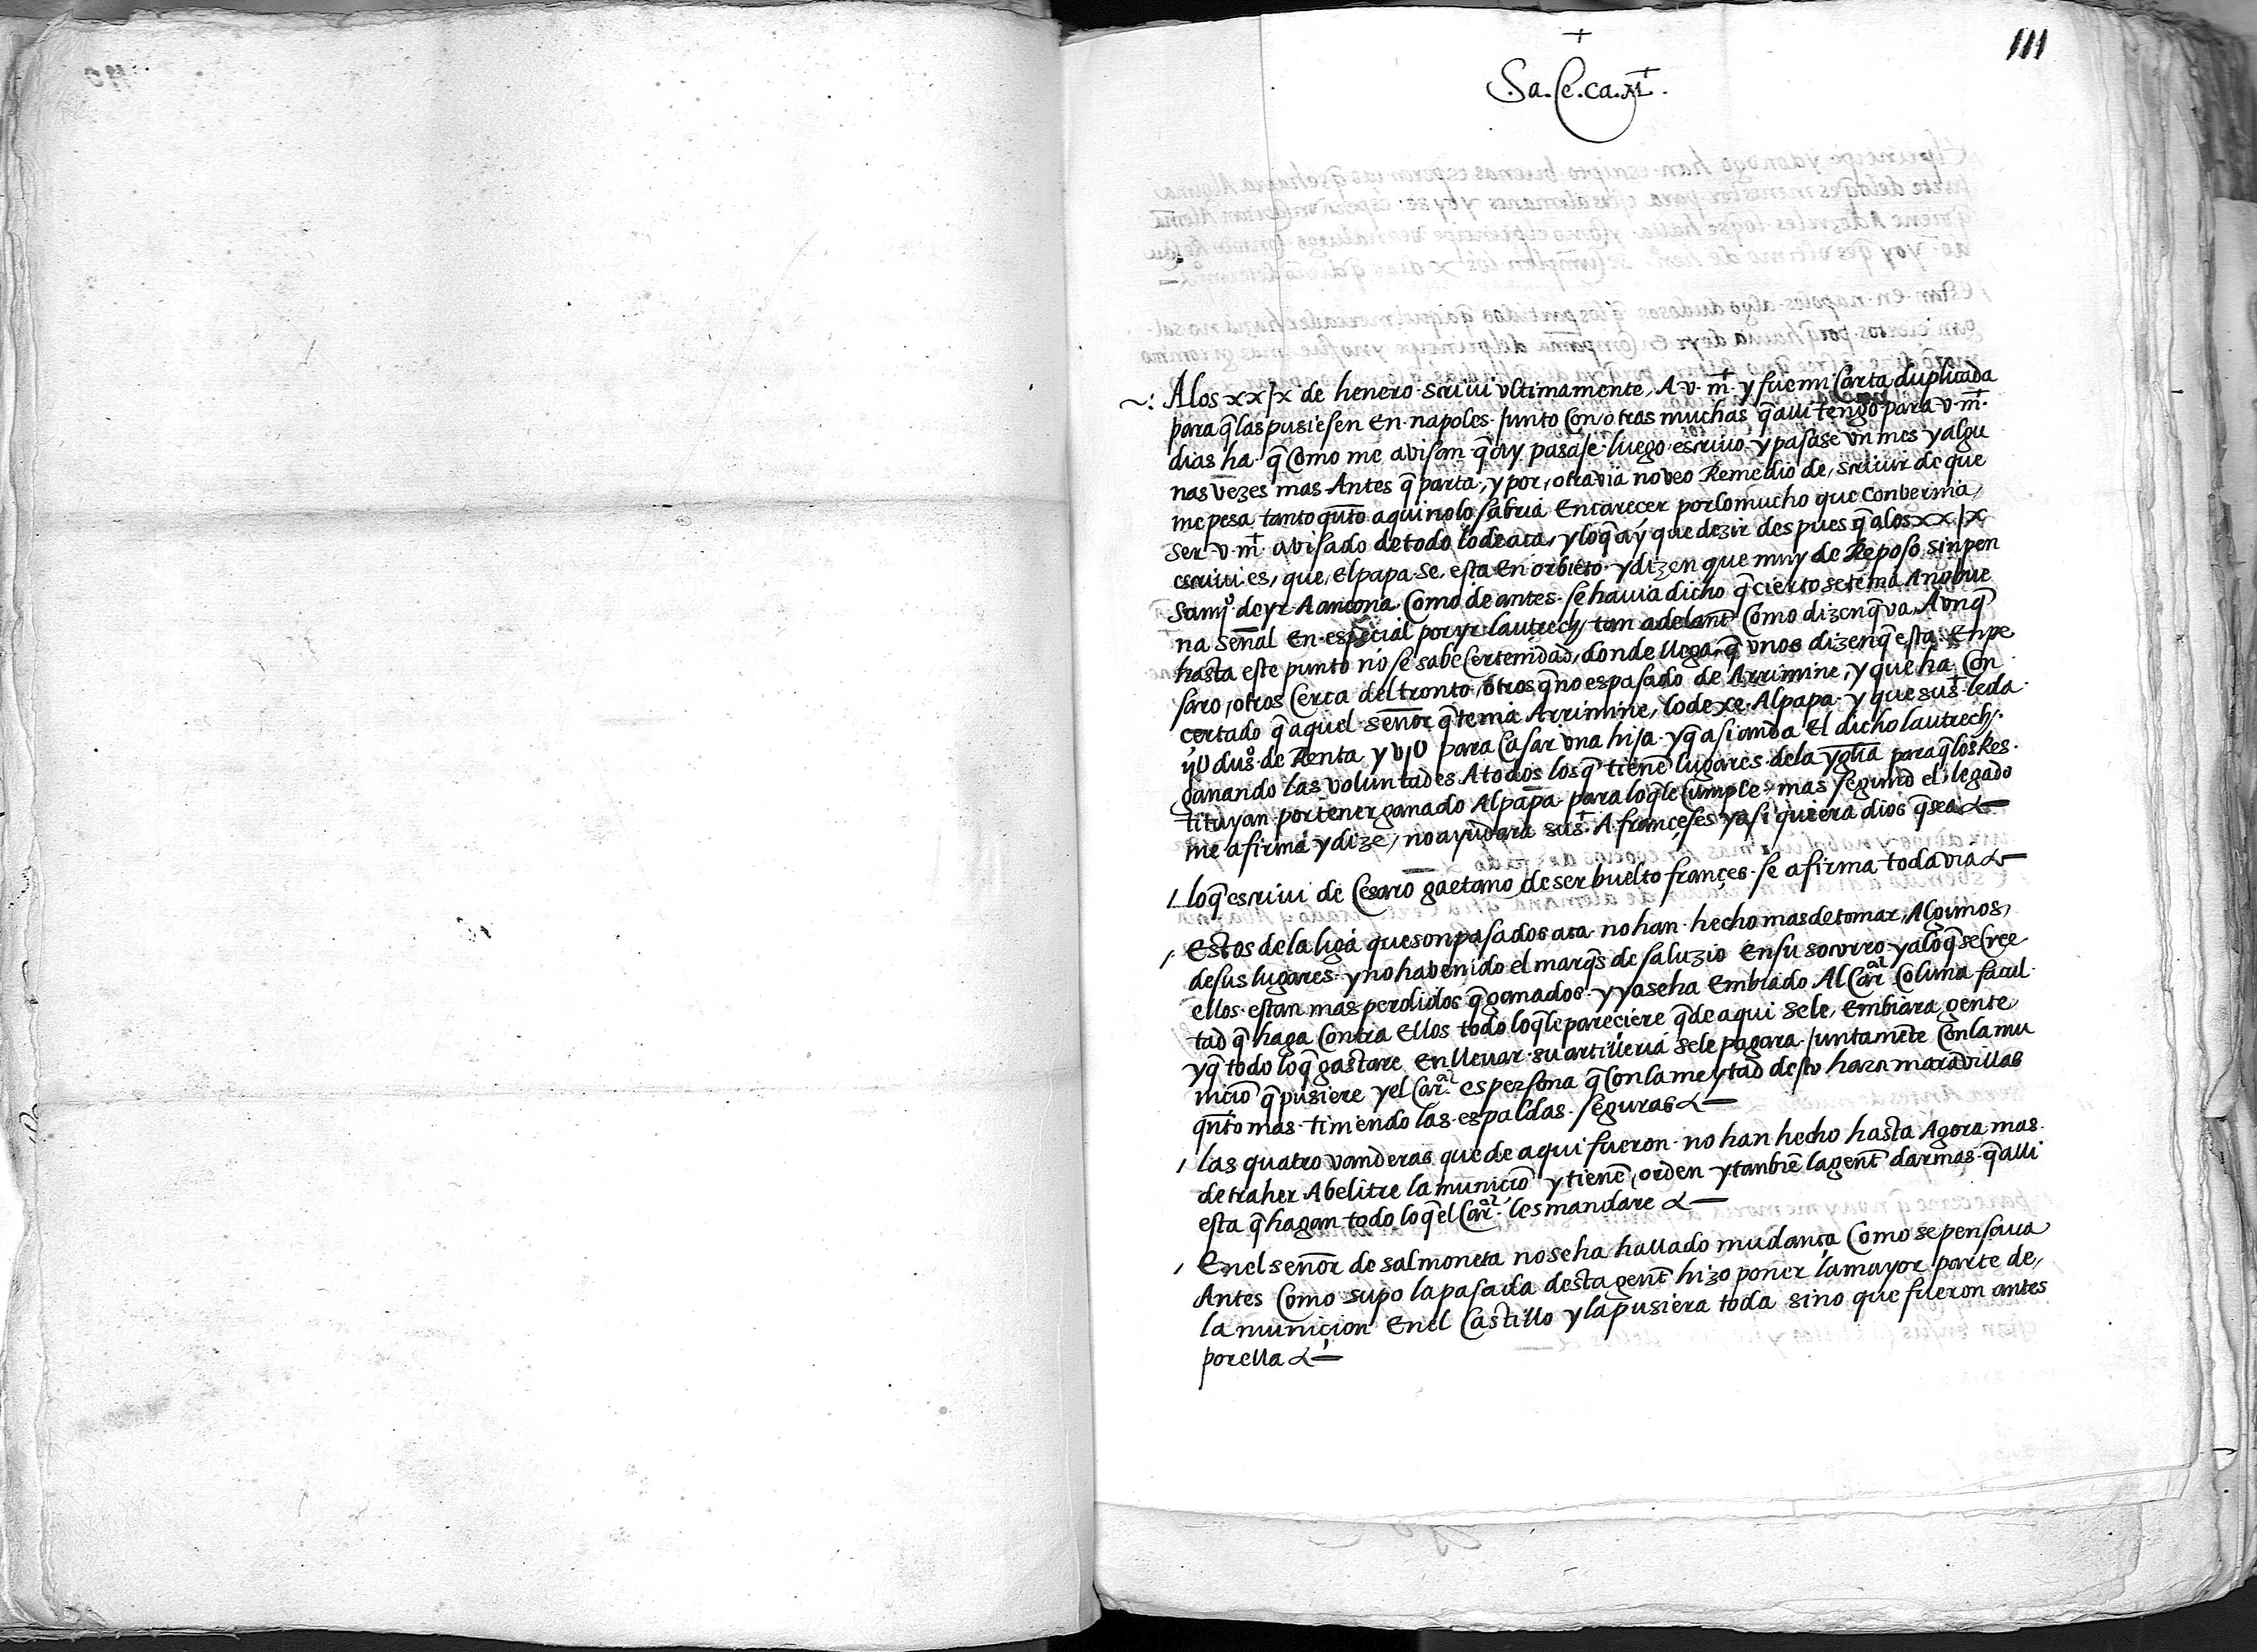 111
+
Sa. Ce. ca. M.t
A los xxjx de henero scriui vltimamente, A v. m.t y fue mi Carta duplicada
para q̄ las pusiesen en napoles junto con otras muchas q̄ alli tengo para v. m.t
dias ha q̄ como me avisan q̄ ay pasaje luego escriuo y pasase vn mes y algu
nas vezes mas Antes q̄ parta, y por, otra via no veo Remedio de, scriuir de que
me pesa tanto qūto aqui no lo sabria Encarecer por lo mucho que Convernia,
ser v. m.t avisado de todo lo de aca, y lo q̄ ay que dezir despues q̄ alos xxjx
escriui es, que, el papa se, esta en orbieto y dizen que muy de Reposo sin pen
samjo de yr A ancona, Como de antes se hauia dicho q̄ cierto se tenia A no bue
na señal en especial por yr lautrech tan adelant Como dizen q̄ va, Avnq̄
hasta este punto no se sabe Certenidad, donde llega, q̄ vnos dizen q̄ esta En pe
saro, otros Cerca del tronto, otros q̄ no es pasado de Arrimine, y que ha Con
certado q̄ aquel señor q̄ tenia Arrimine, lo dexe Al papa y que su s.t le da
ijU dus de Renta y vjU para Casar vna hija y q̄ asi anda El dicho lautrech
ganando las voluntades A todos los q̄ tienē lugares de la yglia para q̄ los Res
tituyan por tener ganado Al papa para lo q̄ le Cumple, mas segund el, legado
me afirma y dize, no ayudara su s.t A françeses y asi quiera dios q̄ sea
/ lo q̄ escriui de Cesaro gaetano de ser buelto françes se afirma todavia
/ Estos de la liga que son pasados aca no han hecho mas de tomar, Algunos,
de sus lugares y no ha venido el marq̄s de saluzio en su socorro y a lo q̄ se Cree
ellos estan mas perdidos q̄ ganados y ya se ha Embiado Al Car.al Coluna facul
tad q̄ haga Contra Ellos todo lo q̄ le pareciere q̄ de aqui se le, Embiara gente
y q̄ todo lo q̄ gastare en lleuar su artilleria se le pagara juntamēte Con la mu
niciō q̄ pusiere y el Car.al es persona q̄ Con la meytad desto hara maravillas
qn̄to mas tiniendo las espaldas seguras
/ las quatro vanderas que de aqui fueron no han hecho hasta Agora mas
de traher A belitre la municiō y tienē, orden y tanbiē la gent darmas q̄ alli
esta q̄ hagan todo lo q̄ el Car.al les mandare
/ En el señor de salmoneta no se ha hallado mudança Como se pensaua
Antes Como supo la pasada desta gent hizo poner la mayor parte de,
la municion en el Castillo y la pusiera toda sino que fueron antes
por ella